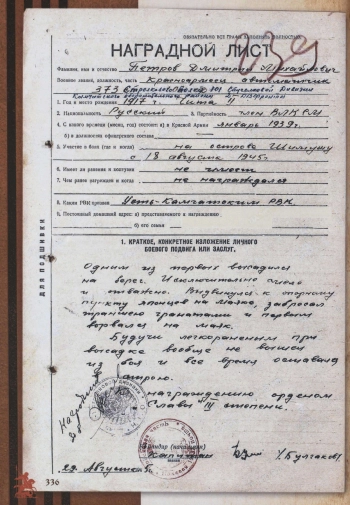 ОБЯЗАТЕЛЬНО ВСЕ ГРАФЫ ЗАПОЛНЯТЬ ПОЛНОСТЬЮ
НАГРАДНОЙ ЛИСТ
Фамилия, имя и отчество Петров Дмитрий Михайлович
Военное звание, должность, часть Красноармеец автоматчик
373 Стрелкового полка 101 Стрелковой дивизии
1. Год и место рождения 1917 г. Чита
2. Национальность Русский 3. Партийность член ВЛКСМ
4. С какого времени (месяц, год) состоит: а) в Красной Армии январь 1939 г.
б) в должности офицерского состава
5. Участие в боях (где и когда) на острове Шимушу
с 18 августа 1945 г.
6. Имеет ли ранения и контузии не имеет
7. Чем ранее награжден и когда не награждался
8. Каким РВК призван Усть-Камчатским РВК
9. Постоянный домашний адрес: а) представляемого к награждению
б) его семьи
ДЛЯ ПОДШИВКИ
1. КРАТКОЕ, КОНКРЕТНОЕ ИЗЛОЖЕНИЕ ЛИЧНОГО
БОЕВОГО ПОДВИГА ИЛИ ЗАСЛУГ.
Одним из первых высадился
на берег. Исключительно смело
и отважно. Выдвинулся к опорному
пункту японцев на маяке, забросал
траншею гранатами и первым
ворвался на маяк.
Будучи легкораненым при
высадке вообще не вышел
из боя и все время оставался
в строю.
награждению орденом
Славы III степени.
Командир (начальник)
Капитан Булгаков
22 Августа
336